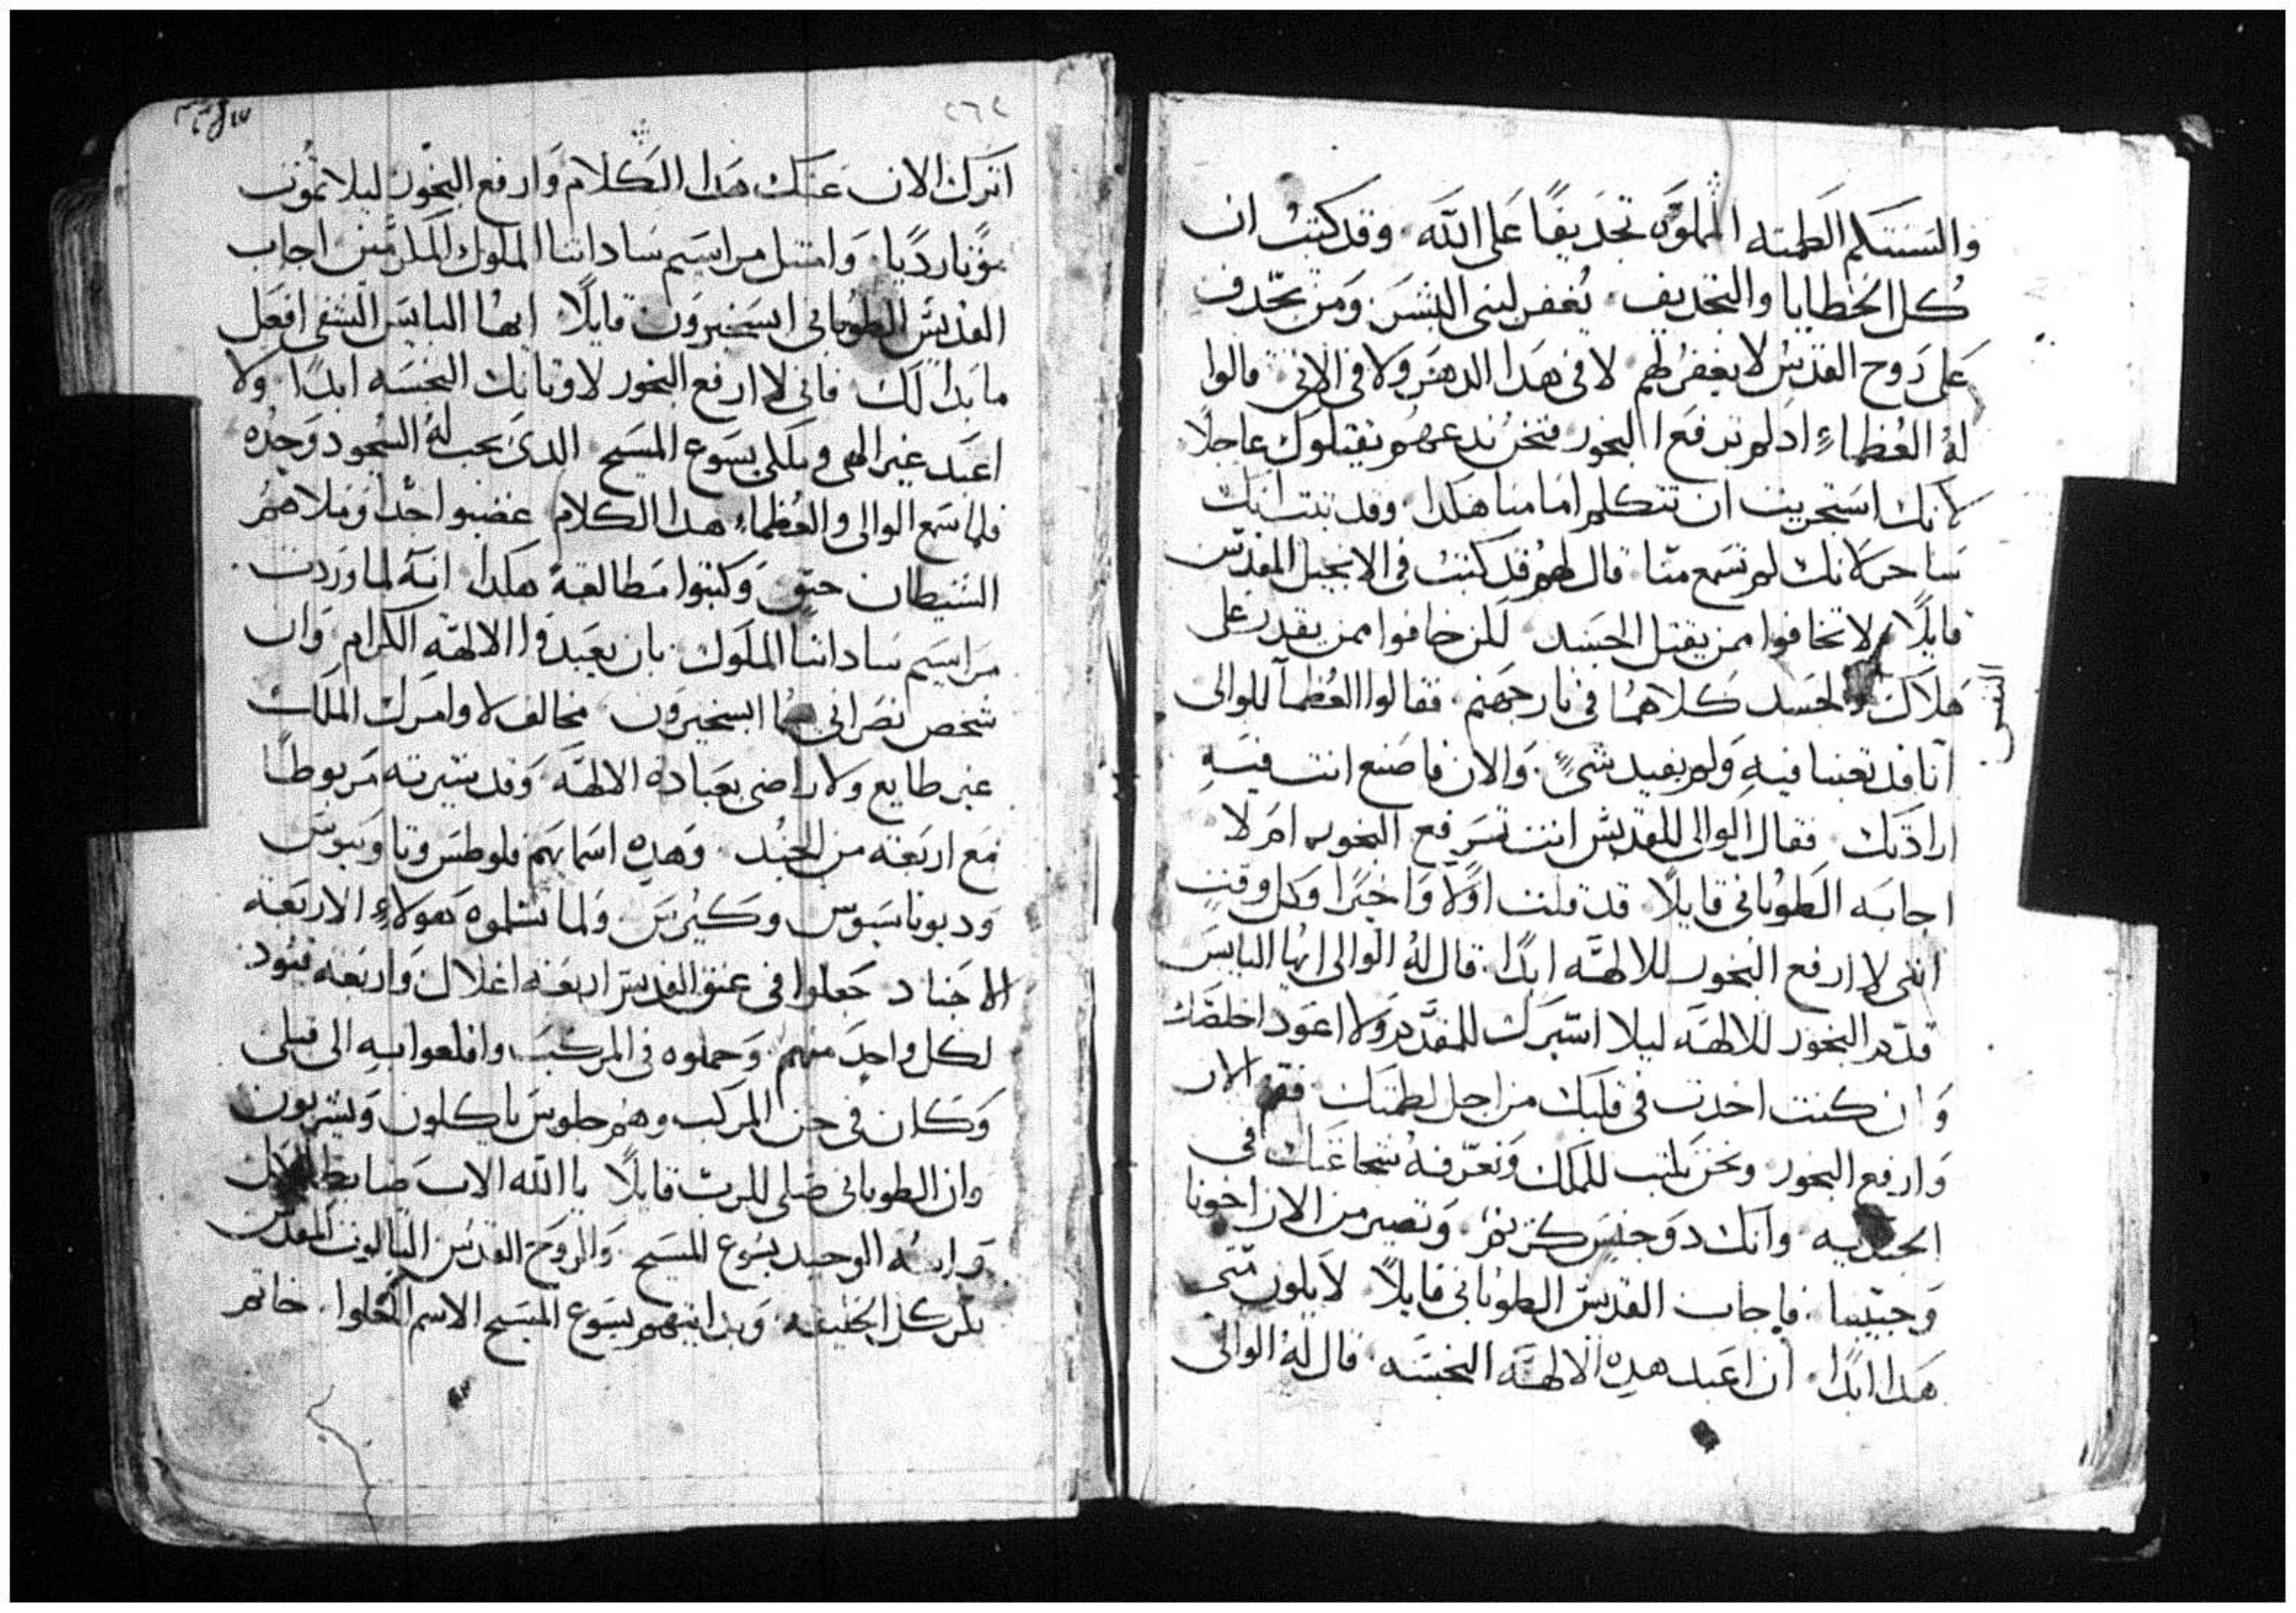 والسنتكم الطمته المملوه تجديفًا على الله٠ وقد كتبُ ان
كل الخطايا والتجديف٠ يُغفر لبنى البشر ومن يجّدف
على رَوح القدسُ لا يغفر لهم٠ لا فى هدا الدهر ولا فى الاتى٠ قالوا
لهُ العُظماءِ اد لم ترفع البخور فنحن ندعهم يقتلوك عاجلًا
لانك استجريت ان تتكلم امامنا هكدا٠ وقد تبت انك
ساحر لانك لم تسمع منّا٠ قال لهم قد كتبُ فى الانجيل المقدّس
قايلًا لا تخافوا ممن يقتل الجسد٠ لكن خافوا ممن يقدر على
النفس
هلاك والجسد كلاهما فى نار جهنم٠ فقالوا العُظمآ للوالى
انا قد تعبنا فيهِ ولم يفيد شىٍ٠ والان فاصنع انت فيهِ
ارادتك٠ فقال الوالى للقديس انت ترفع البخور ام لا
اجابه الطوُبانى قايلًا٠ قد قلت اولًا واخيرًا وكل وقتٍ
اننى لا ارفع البخور للالهّه ابدًا٠ قال لهُ الوالى ايُها البايس
قدّم البخور للالهّه ليلا اسّيرك للمقدَّم ولا اعود اخلصّك
وان كنت اخدت فى قلبك من اجل لطمتك٠ فقم الان
وارفع البخور ونحن نكتب للملك ونعّرفهُ شجاعتك فى
الجنديه٠ وانك دو جنس كريم٠ وتصير من الان اخونا
وحبيبنا٠ فاجاب القديس الطوبانى قايلًا لا يكون منّى
هدا ابدًا٠ ان اعبد هدهِ الالهّه النجسَه٠ قال لهُ الوالى
٢٦٢
اترك الان عنك هدا الكلام وارفع البخور ليلا تموُت
موتًا رديًا٠ وامتثل مراسيم ساداتنا الملوك المكرّمين اجاب
القديس الطوُبانى ابسخيرون قايلًا٠ ايهُا البايس الشقى افعل
ما بدا لك٠ فانى لا ارفع البخور لاوتانك النجسَه ابدًا٠ ولا
اعبد غير الهى وملكى يسوع المسيح٠ الدى يجب لهُ السُجود وحدُه
فلما سمع الوالى والعُظماء هدا الكلام٠ غضبوا جدًا وملاهمُ
الشيطان حنق وكتبوا مطالعة هكدا٠ انهُ لما وردت
مراسيم ساداتنا الملوك٠ بان يعبدوا الالهّه الكرام٠ وان
شخص نصرانى ابسخيرون٠ مخالف لاوامرك الملك
غير طايع ولا راضى بعبادة الالهّه٠ وقد سّيرته مربوطًا
مع اربعة من الجُند٠ وهدهِ اسمايهم فلوطس
وديوناسيوس وكيُرس٠ ولما تسلموه هولاءِ الاربعة
الاجناد جعلوا فى عنق القديس اربعة اغلال واربعة قيود
لكل واحد منهم٠ وحملوه فى المركب٠ واقلعوا بهِ الى قبلى
وكان فى المركب وهم جلوس ياكلون ويشربون
وان الطوبانى صَلى للرب قايلًا٠ يا الله الاب ضابط الكل
وابنهُ الوحيد يسوع المسيح٠ والروح القدس التالوت المقدس
الخليقه٠ يسوع المسيح الاسم الحلوا٠ خاتم